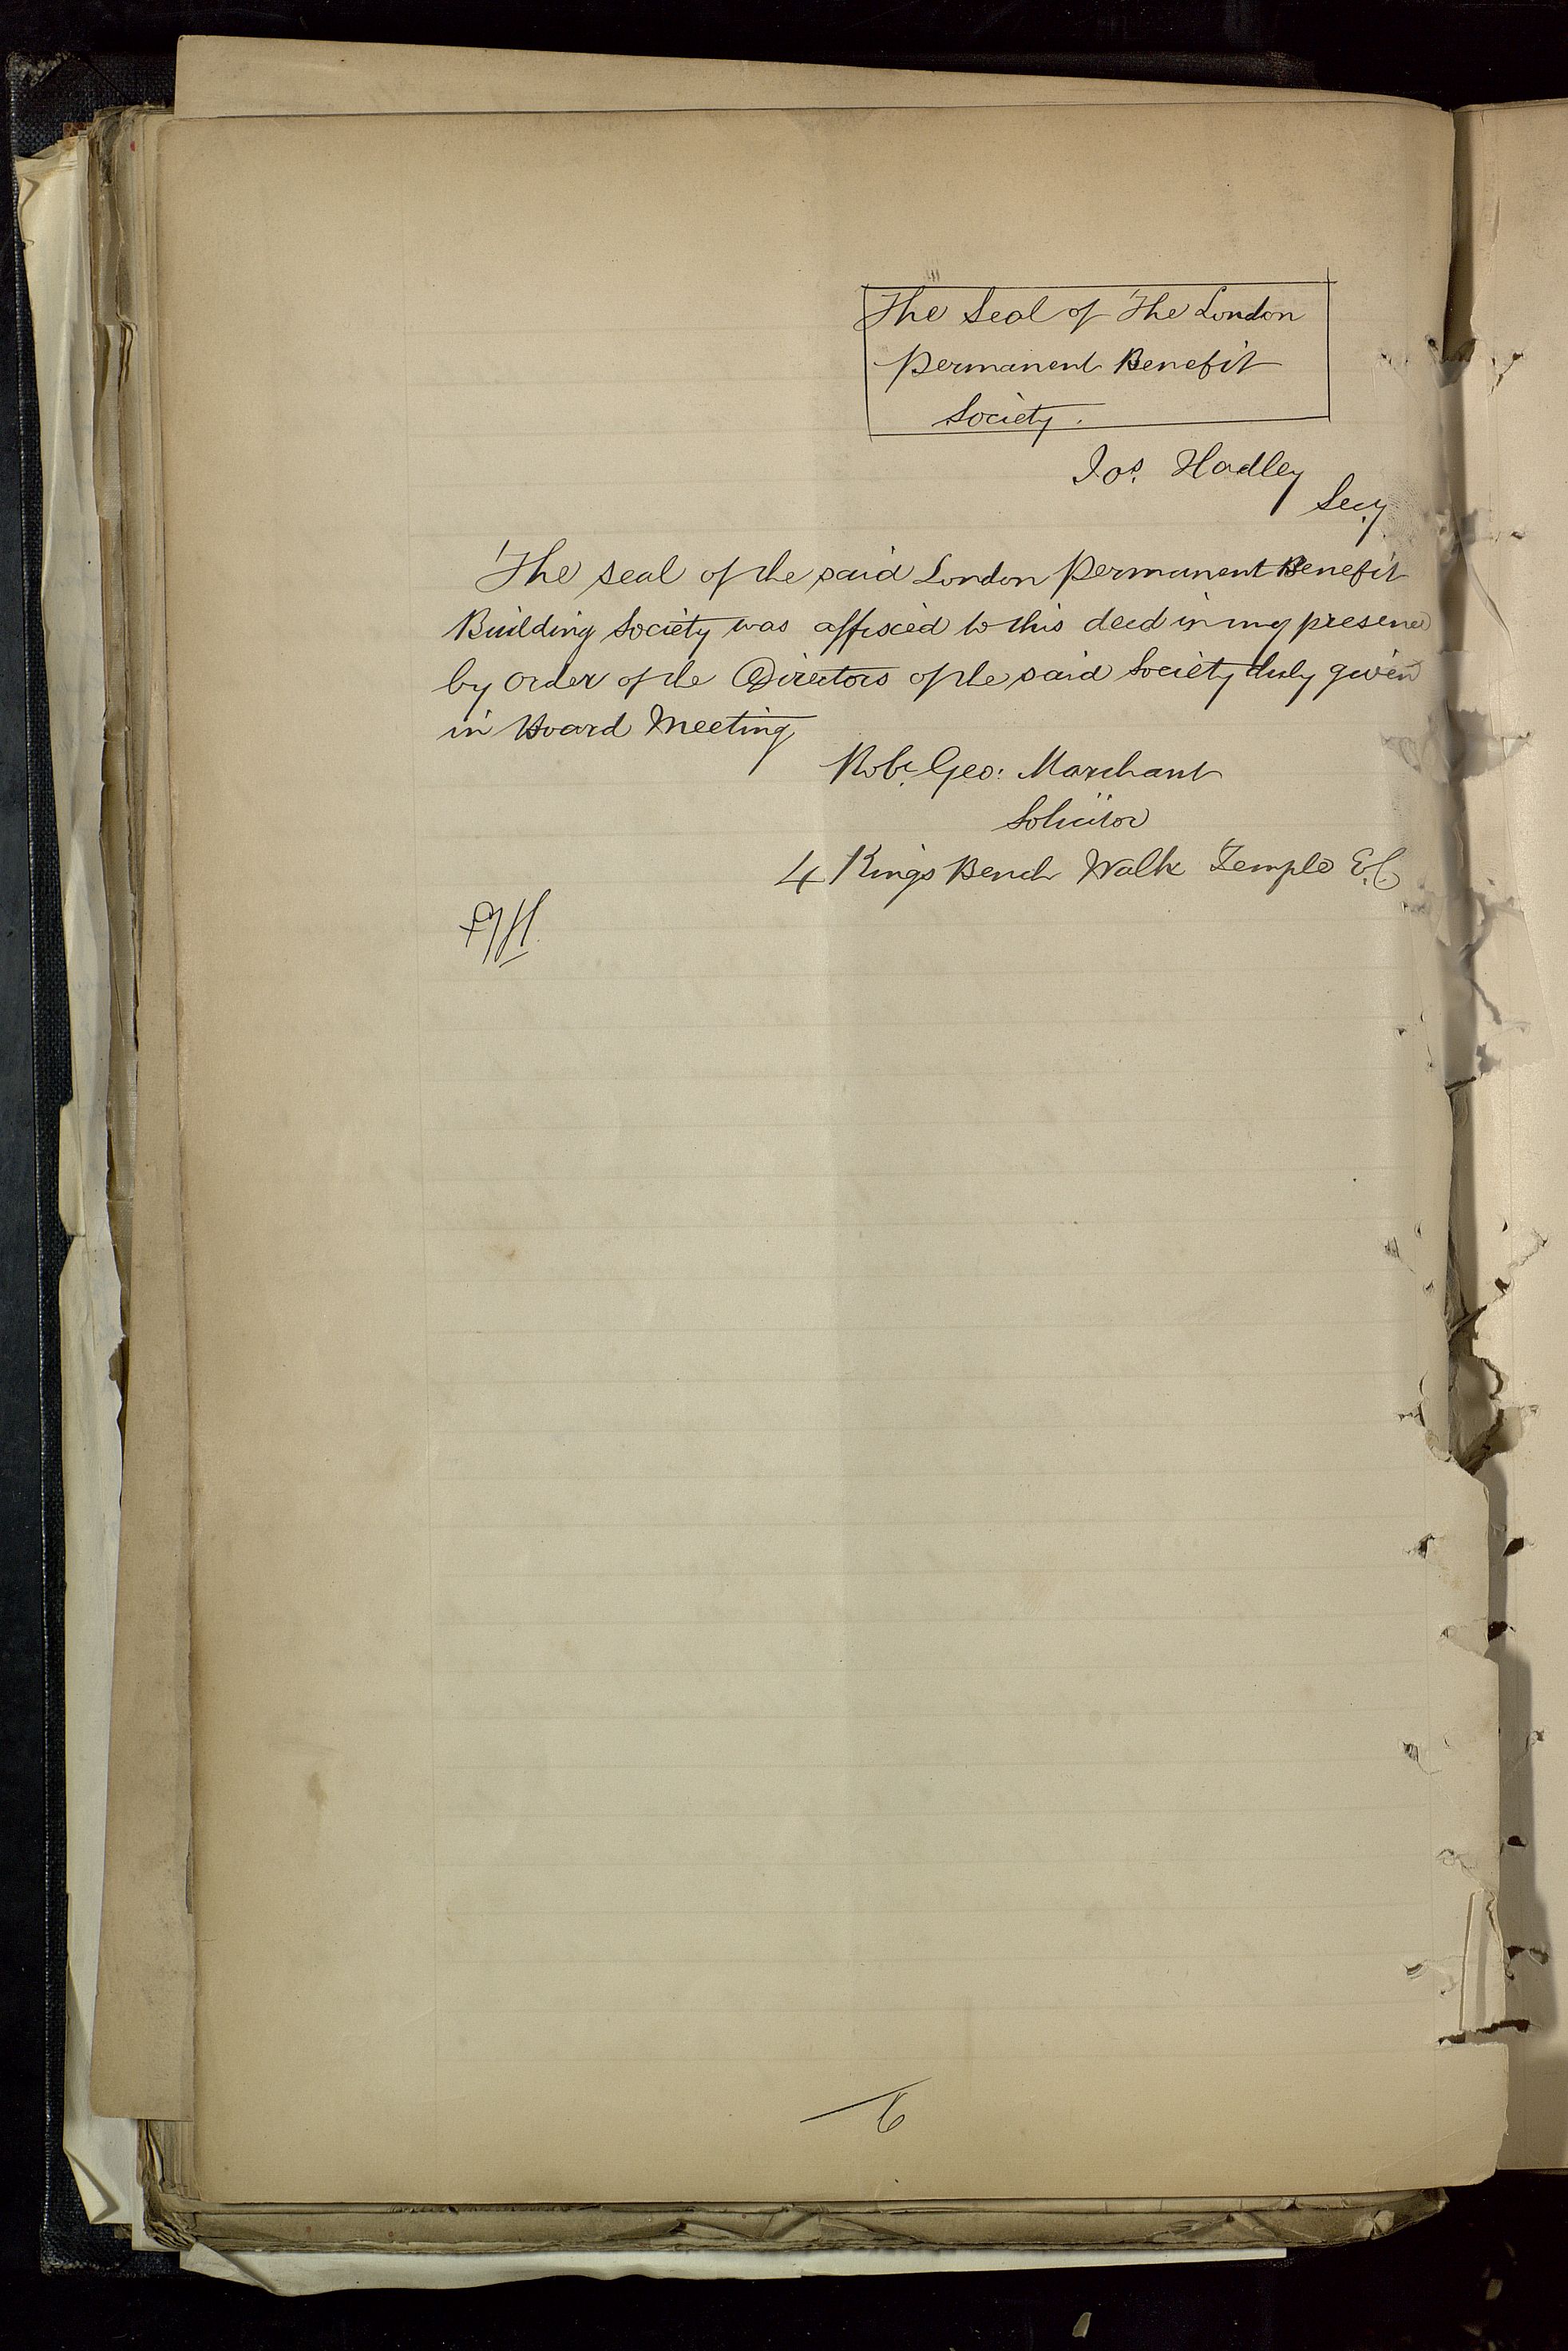 The Seal of The London
Permanent Benefit
Society.
Jos. Hadley
Secy
The seal of the said London Permanent Benefit
Building Society was affixed to this deed in my presence
by order of the Directors of the said Society duly given
in Board Meeting
Robt. Geo: Marchant
Solicitor
4 Kings Bench Walk Temple E.C
6